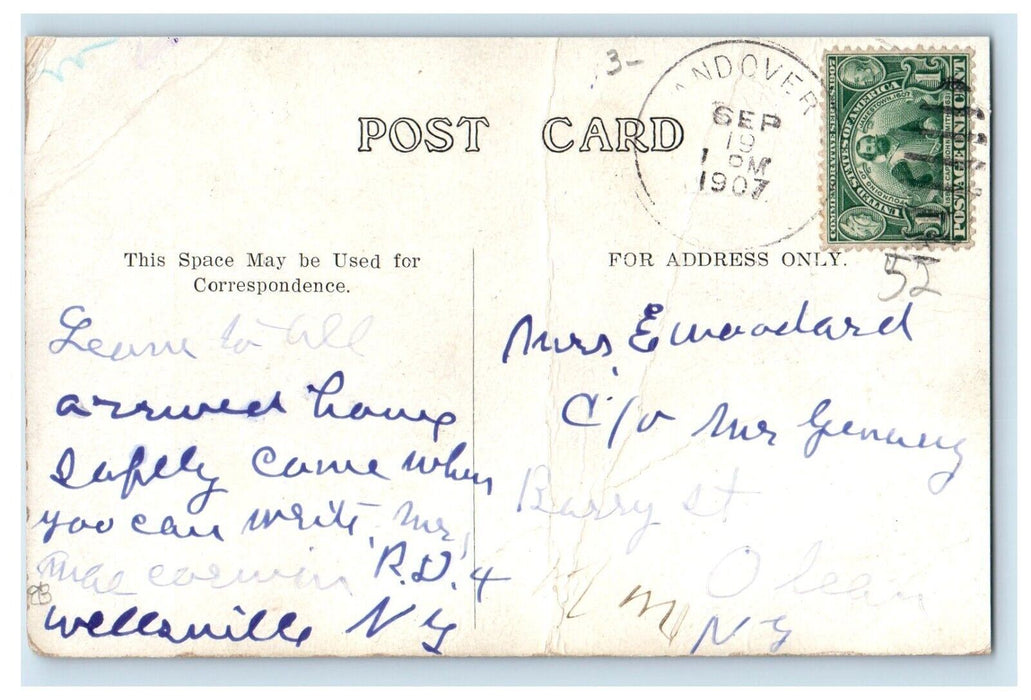 3-
ANDOVER
SEP
19
1 PM
1907
COMMEMORATIVE SERIES 1907
UNITED STATES OF AMERICA
POSTAGE ONE CENT
1
1
POST CARD
52
This Space May be Used for
Correspondence.
FOR ADDRESS ONLY.
to all
arrived home
Saftly Come when
you can write, Mr,
Mae corwin R.D. 4
wellsville N Y
Mrs, E woodard
C/o Mr
Barry st
Olean
N Y